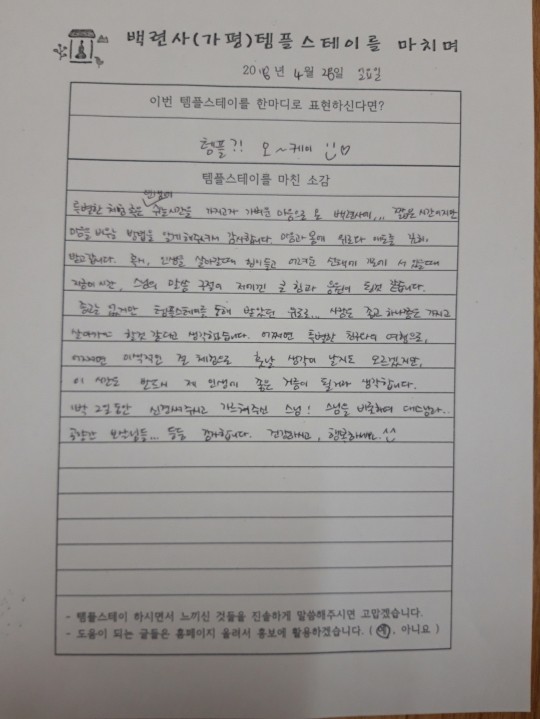 백련사(가평)템플스테이를 마치며
2018년 4월 28일 토요일
이번 템플스테이를 한마디로 표현하신다면?
템플?! 오~케이
템플스테이를 마친 소감
특별한 체험 혹은 쉬는시간을 가지고자 가벼운 마음으로 온 백련사에... 짧은 시간이지만
마음을 비우는 방법을 알게해주셔서 감사합니다. 마음과 몸에
받고갑니다. 혹시, 인생을 살아갈때 힘이들고 어려운 선택의 기로에 서 있을때
지금이시간, 스님의 말씀 구절이 저에겐 큰 힘과 응원이 될것 같습니다.
종교는 없지만 템플스테이를 통해 사람도 종교 하나쯤은 가지고
살아가야 할것 같다고 생각했습니다. 어쩌면 특별한 하나의 여행으로,
어쩌면 이색적인 절 체험으로 훗날 생각이 날지도 모르겠지만,
이 시간도 반드시 제 인생에 좋은 거름이 될거라 생각합니다.
1박 2일동안 신경써주시고 가르쳐주신 스님! 스님을 비롯하여
보살님들... 등등 감사합니다. 건강하시고, 행복하세요.^^
- 템플스테이 하시면서 느끼신 것들을 진솔하게 말씀해주시면 고맙겠습니다.
- 도움이 되는 글들은 홈페이지 올려서 홍보에 활용하겠습니다. (예, 아니요)